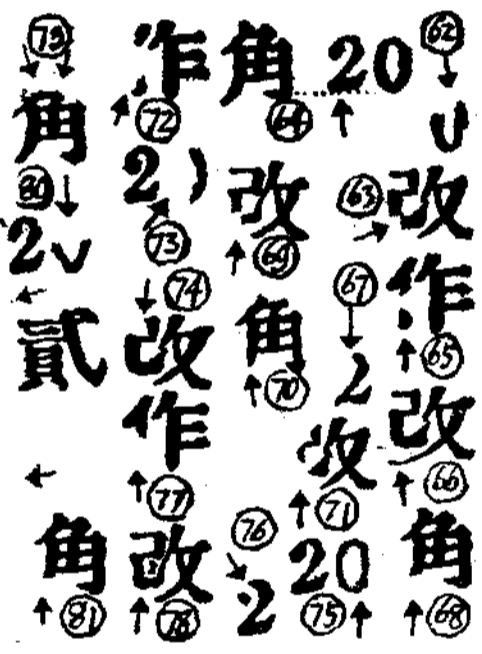 62
U
63 改
作
65
改
66
角
68
20
64
67
2
改
71
20
75
角
改
69
角
70
76
2
作
72
2)
73
74
改
作
77
改
78
角
80
2v
貳
角
81